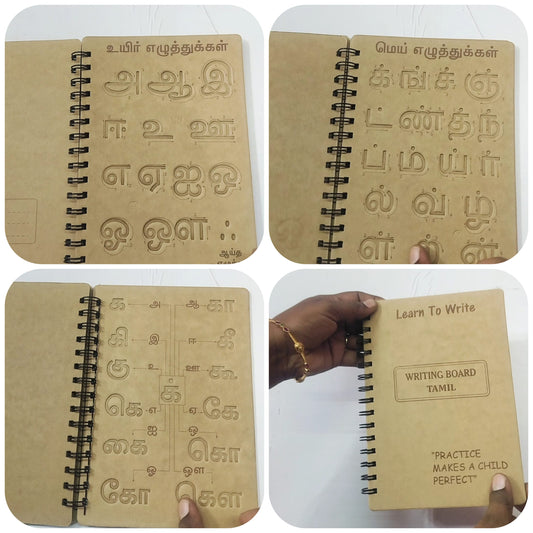 உயிர் எழுத்துக்கள்
அ ஆ இ
ஈ உ ஊ
எ ஏ ஐ ஒ
ஓ ஔ ஃ
ஆய்த
மெய் எழுத்துக்கள்
க் ங் ச் ஞ்
ட் ண் த் ந்
ப் ம் ய் ர்
ல் வ் ழ்
ள் ற் ன்
க அ ஆ கா
கி இ ஈ கீ
கு உ ஊ கூ
க
கெ எ ஏ கே
கை ஐ ஒ கொ
கோ ஓ ஔ கௌ
Learn To Write
WRITING BOARD
TAMIL
"PRACTICE
MAKES A CHILD
PERFECT"